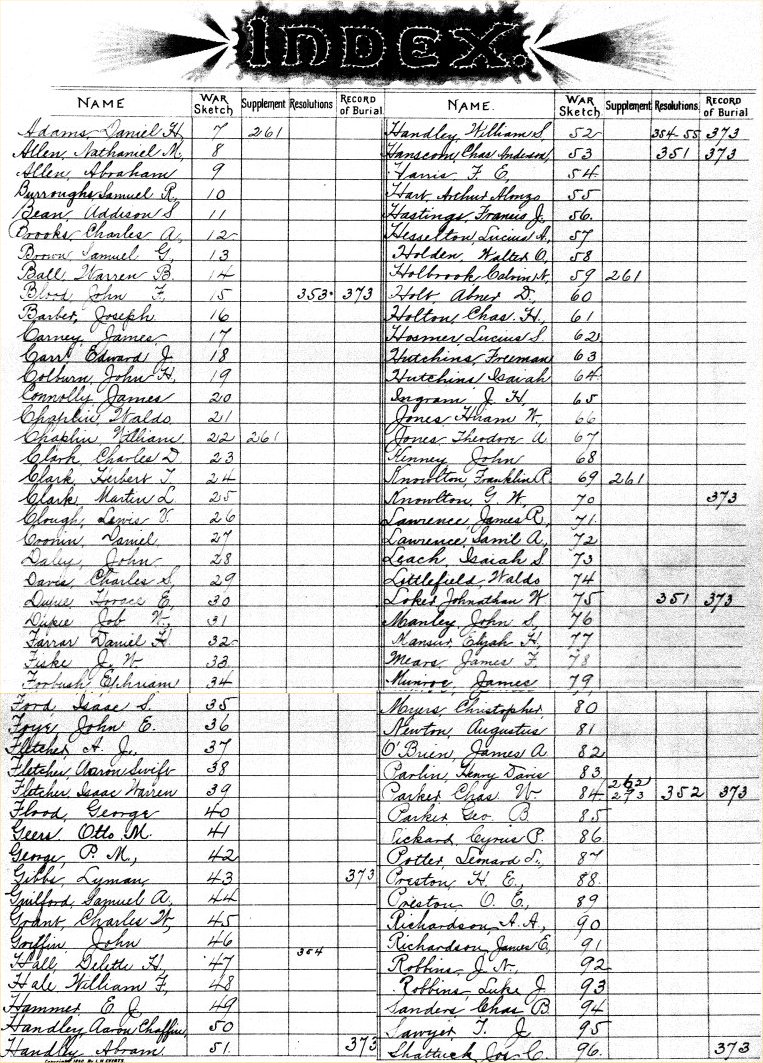 INDEX.
NAME WAR Sketch Supplement Resolutions RECORD of Burial
Adams, Daniel H, 7 261
Allen, Nathaniel M, 8
Allen, Abraham 9
Burroughs, Samuel R, 10
Bean, Addison S 11
Brooks, Charles A, 12
Brown Samuel G, 13
Ball Warren B. 14
Blood, John F, 15 353. 373
Barber, Joseph 16
Carney, James, 17
Carr, Edward J. 18
Colburn, John H, 19
Connolly James 20
Chaplin, Waldo 21
Chaplin, William 22 261
Clark Charles D 23
Clark, Herbert T, 24
Clark, Martin L 25
Clough, Lewis V. 26
Cronin, Daniel 27
Daley, John 28
Davis, Charles S, 29
Dupee, Horace E, 30
Dupee Job W, 31
Farrar Daniel H. 32
Fiske J. W 33
Forbush, Ephriam 34
Ford Isaac S. 35
Foye, John E. 36
Fletcher, A. J., 37
Fletcher, Aaron Swift 38
Fletcher, Isaac Warren 39
Flood, George 40
Geers, Otto M. 41
George, P. M, 42
Gibbs, Lyman, 43 373
Guilford, Samuel A, 44
Grant, Charles W, 45
Griffin, John 46
Hall, Delette H, 47 354
Hale, William F, 48
Hammer E. J 49
Handley, Aaron Chaffin, 50
Handley, Abram 51. 373
Copyrighted 1890, By L. H. EVERTS
NAME. WAR Sketch Supplement Resolutions, RECORD of Burial
Handley, William S. 52 354-55 373
Hanscom, Chas Anderson, 53 351 373
Harris, F. E, 54
Hart, Arthur Alonzo 55
Hastings, Francis J. 56.
Hesselton, Lucius A, 57
Holden, Walter O, 58
Holbrook, Calvin N. 59 261
Holt, Abner D., 60
Holton, Chas. H., 61
Hosmer, Lucius S. 62
Hutchins, Freeman 63
Hutchins Isaiah 64
Ingram J. H, 65
Jones Hiram W, 66
Jones Theodore A 67
Kenney John 68
Knowlton, Franklin P. 69 261
Knowlton, G. W, 70 373
Lawrence, James R, 71
Lawrence, Saml A, 72
Leach, Isaiah S. 73
Littlefield, Waldo 74
Loker, Johnathan W 75 351 373
Manley, John S, 76
Mansur, Elijah H. 77
Mears, James F. 78
Munroe, James 79
Myers, Christopher, 80
Newton, Augustus 81
O'Brien, James A. 82
Parlin, Henry Davis 83
Parker Chas W. 84 262 273 352 373
Parker, Geo. B. 85
Pickard, Cyrus P. 86
Potter, Leonard L., 87
Preston, H. E. 88.
Preston, O. E, 89
Richardson, A. A, 90
Richardson, James E, 91
Robbins, J. N. 92
Robbins, Luke J. 93
Sanders, Chas B. 94
Sawyer, F. J 95
Shattuck, Jos C. 96. 373